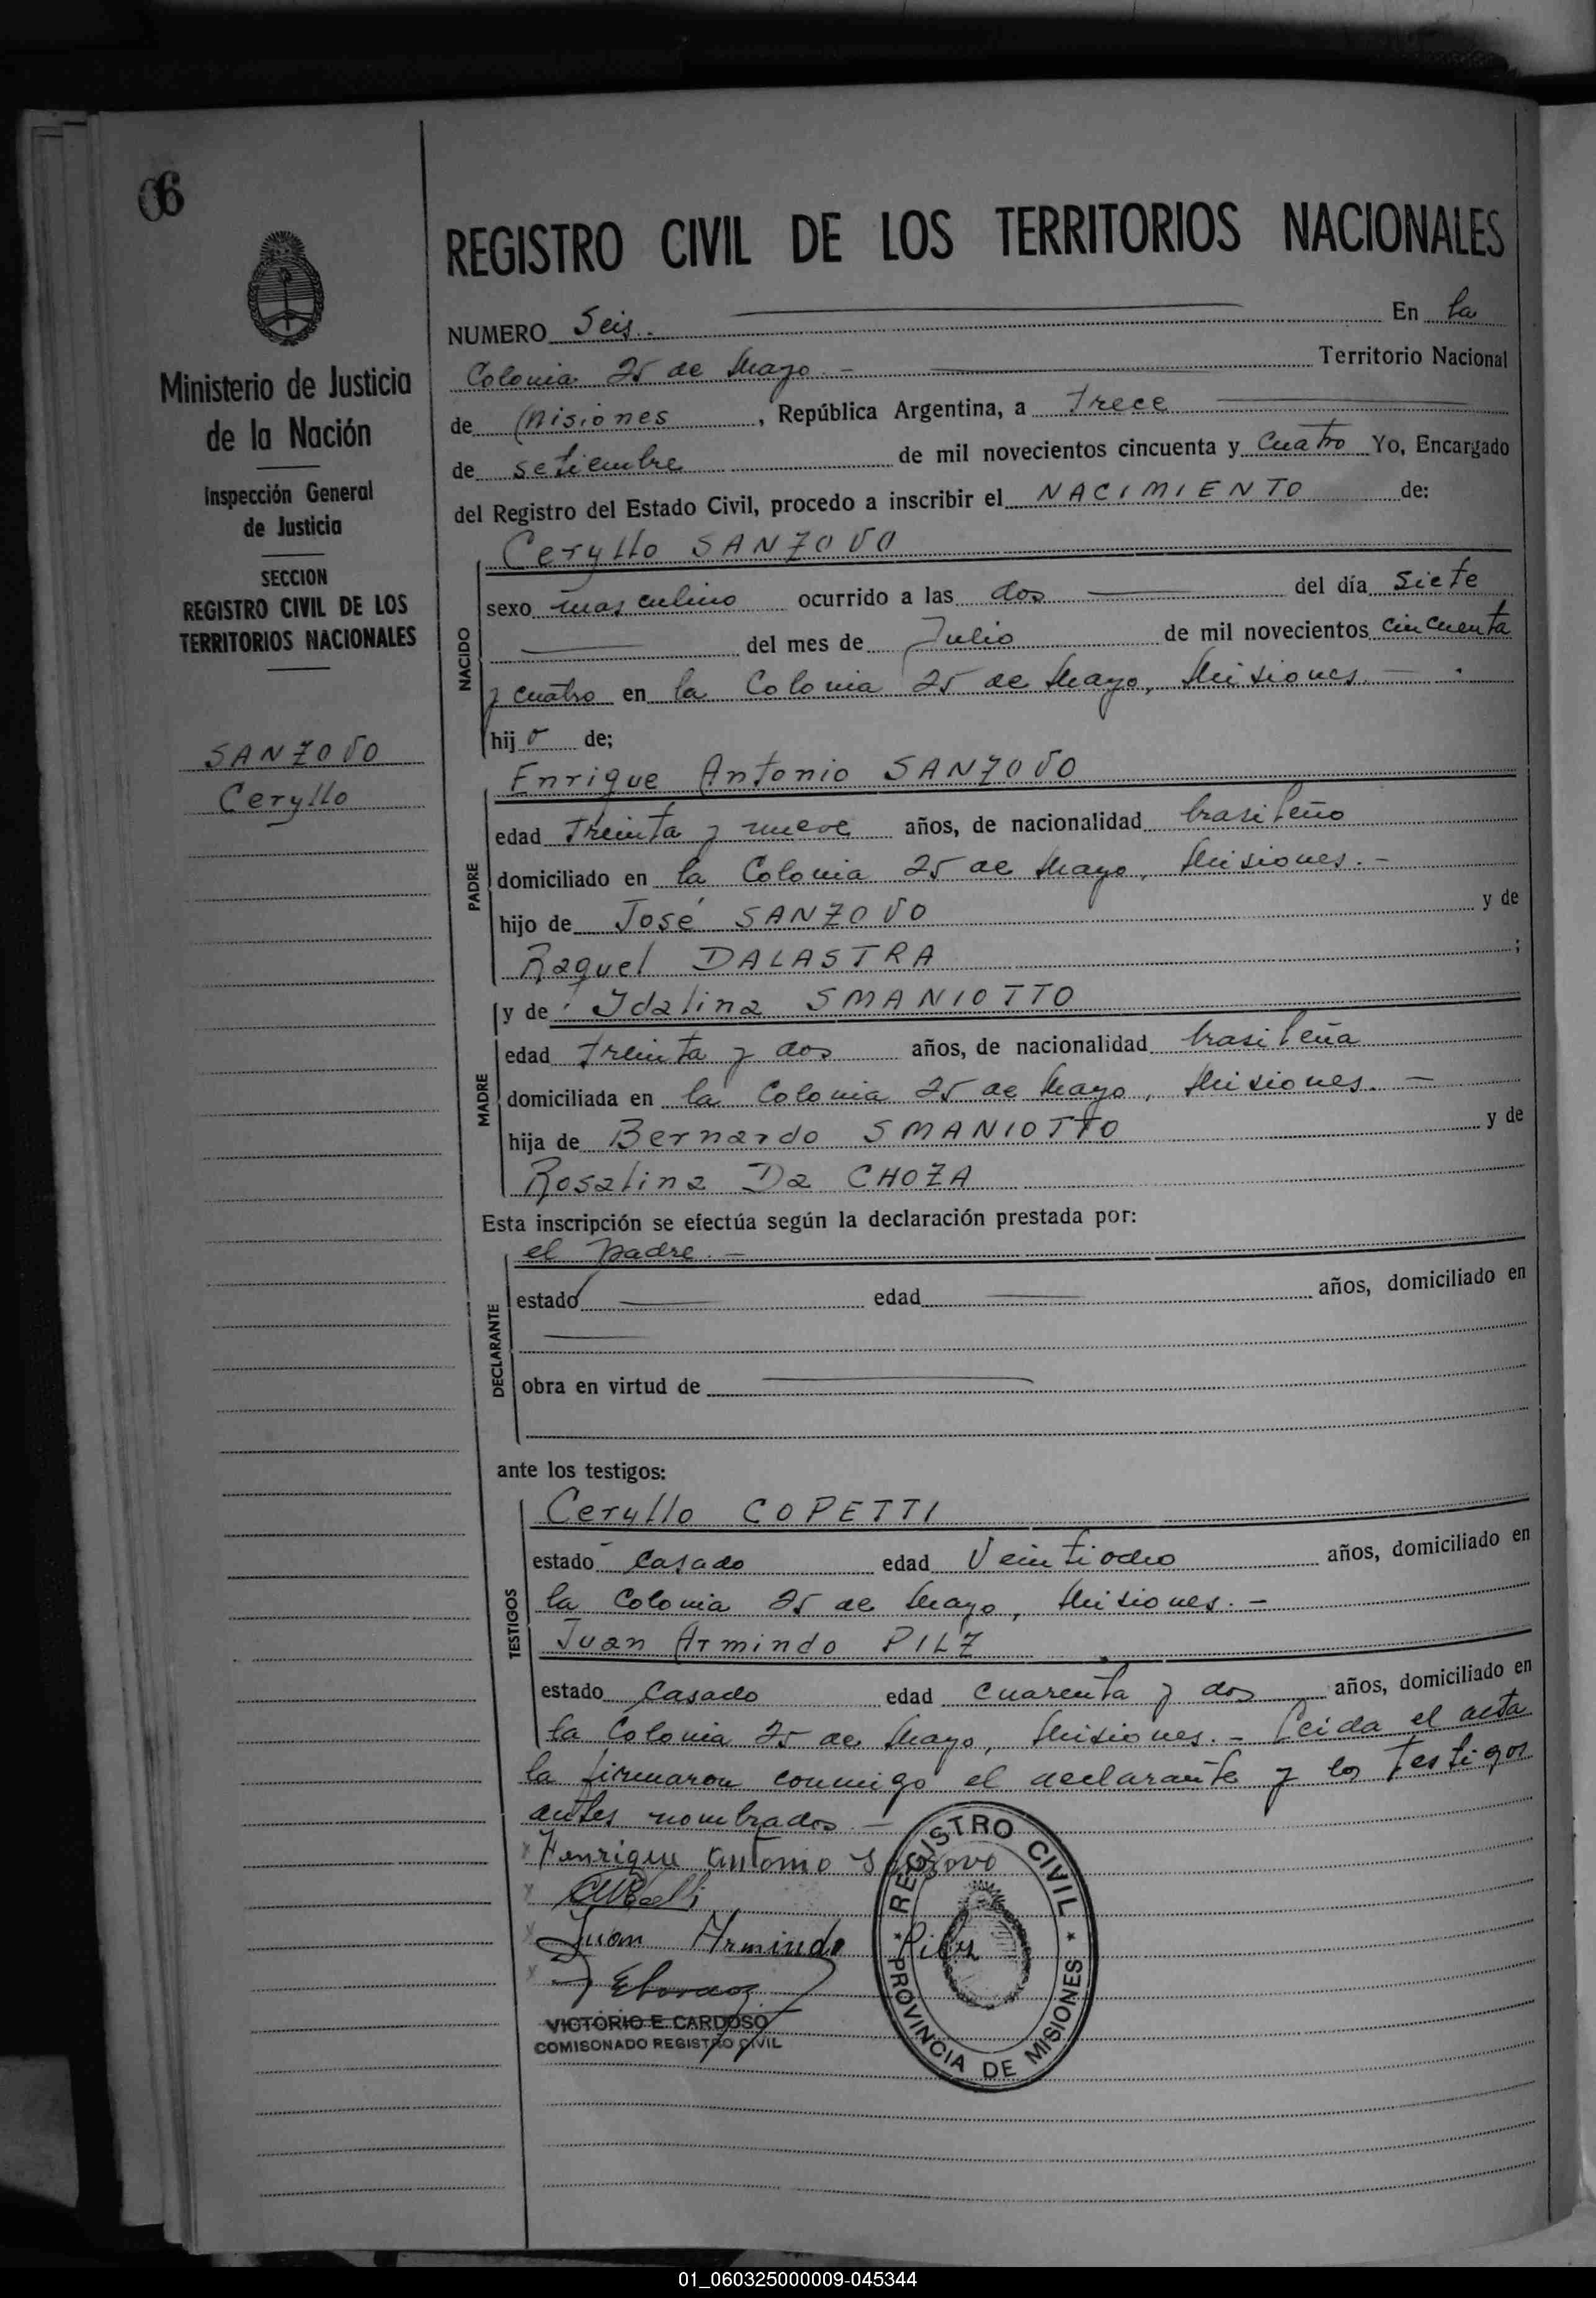 06
REGISTRO CIVIL DE LOS TERRITORIOS NACIONALES
Ministerio de Justicia
de la Nación
Inspección General
de Justicia
SECCION
REGISTRO CIVIL DE LOS
TERRITORIOS NACIONALES
SANZOVO
Ceryllo
NUMERO Seis.- En la
Colonia 25 de Mayo.- Territorio Nacional
de Misiones, República Argentina, a trece
de setiembre de mil novecientos cincuenta y cuatro Yo, Encargado
del Registro del Estado Civil, procedo a inscribir el NACIMIENTO de:
NACIDO
Ceryllo SANZOVO
sexo masculino ocurrido a las dos del día siete
del mes de Julio de mil novecientos cincuenta
y cuatro en la Colonia 25 de Mayo, Misiones.
hijo de;
PADRE
Enrique Antonio SANZOVO
edad treinta y nueve años, de nacionalidad brasileño
domiciliado en la Colonia 25 de Mayo, Misiones.-
hijo de José SANZOVO y de
Raquel DALASTRA ;
y de Idalina SMANIOTTO
MADRE
edad treinta y dos años, de nacionalidad brasileña
domiciliada en la Colonia 25 de Mayo, Misiones.-
hija de Bernardo SMANIOTTO y de
Rosalina Da CHOZA
Esta inscripción se efectúa según la declaración prestada por:
DECLARANTE
el padre.-
estado edad años, domiciliado en
obra en virtud de
ante los testigos:
TESTIGOS
Ceryllo COPETTI
estado casado edad Veintiocho años, domiciliado en
la Colonia 25 de Mayo, Misiones.-
Juan Armindo PILZ
estado casado edad cuarenta y dos años, domiciliado en
la Colonia 25 de Mayo, Misiones.- Leida el acta
la firmaron conmigo el declarante y los testigos
antes nombrados.-
Henrique Antonio Sanzovo
Juan Armindo Pilz
VICTORIO E. CARDOSO
COMISONADO REGISTRO CIVIL
REGISTRO CIVIL
PROVINCIA DE MISIONES
01_060325000009-045344